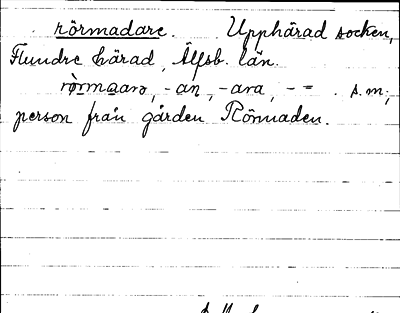 rörmadare. Upphärad socken,
Flundre härad, Älfsb. län.
-an, -ara, - = . s.m;
person från gården Rörmaden.